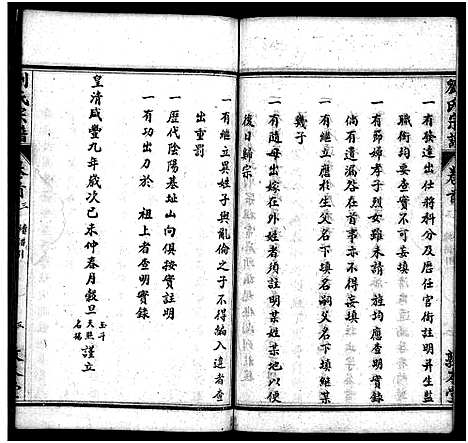 劉氏宗譜 卷首
一有發達出仕將科分及歷任官銜註明并生監
職銜均要查實不可妄填
一有節婦孝子烈女雖未請旌均應查明實錄
倘有遺漏咎在首事亦不得妄填
一有繼立應於生父名下填明嗣父名下填明繼某
幾子
一有隨母出嫁在外姓者須註明某姓某地以便
後日歸宗
一有繼立異姓子與亂倫之子不得濫入違者查
出重罰
一歷代陰陽基址山向俱按實註明
一有功出力於 祖上者查明實錄
皇清咸豐九年歲次己未仲春月穀旦
謹立
劉氏宗譜 卷首